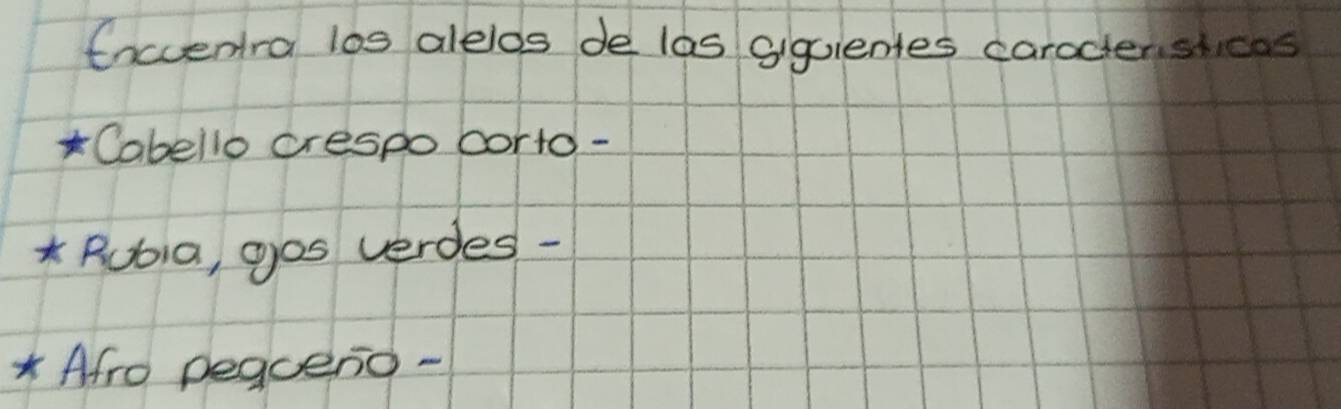 Encuentra los alelos de las siguientes caracteristicas
*Cabello crespo corto-
* Rubia, ojos verdes-
* Afro pequeño-